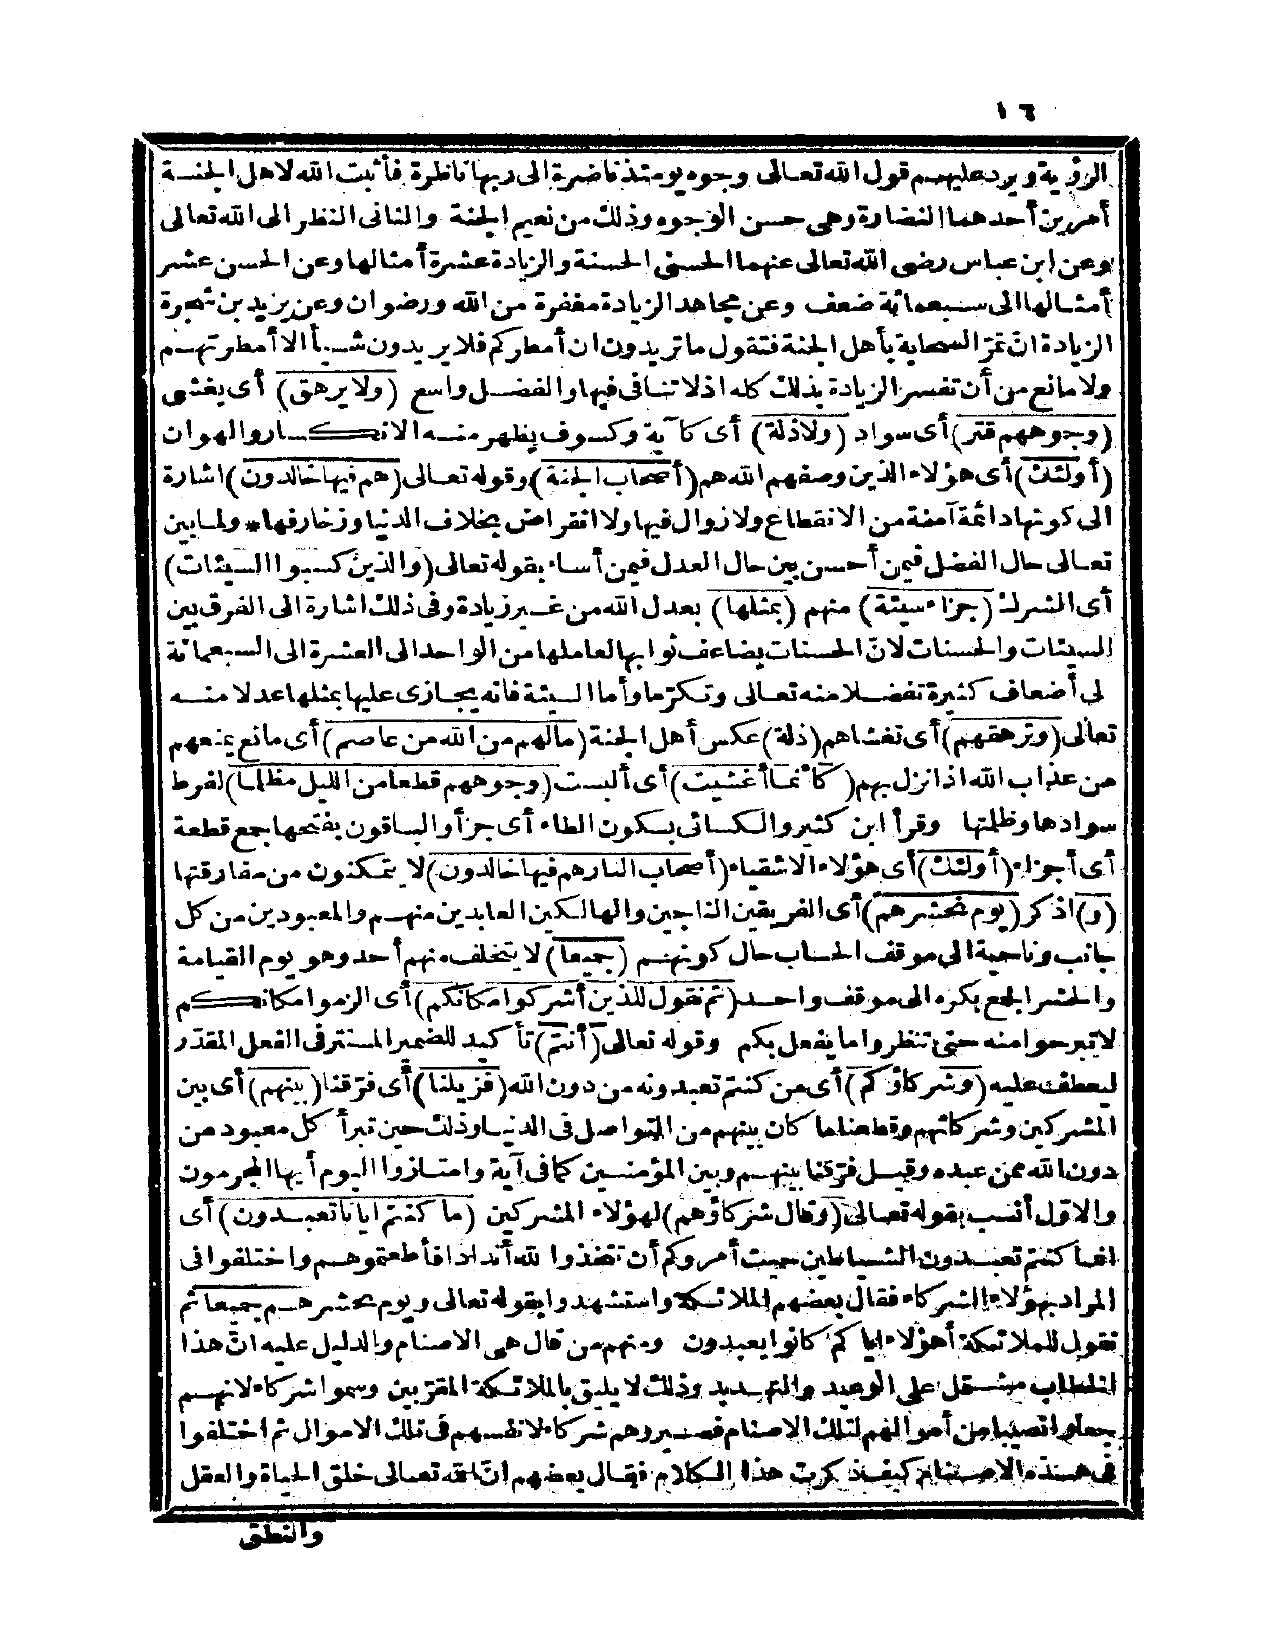 ١٦
الرؤية ويرد عليهم قول الله تعالى وجوه يومئذ ناضرة الى ربها ناظرة فأثبت الله لاهل الجنة
أمرين أحدهما النضارة وهى حسن الوجوه وذلك من نعيم الجنة والثانى النظر الى الله تعالى
وعن ابن عباس رضى الله تعالى عنهما الحسنى الحسنة والزيادة عشرة أمثالها وعن الحسن عشر
أمثالها الى سبعمائة ضعف وعن مجاهد الزيادة مغفرة من الله ورضوان وعن يزيد بن شجرة
الزيادة ان تمرّ السحابة بأهل الجنة فتقول ما تريدون ان أمطركم فلا يريدون شيأ الا أمطرتهم
ولا مانع من أن تفسر الزيادة بذلك كله اذ لا تنافى فيها والفضل واسع (ولا يرهق) أى يغشى
(وجوههم قتر) أى سواد (ولا ذلة) أى كآبة وكسوف يظهر منه الانكسار والهوان
(أولئك) أى هؤلاء الذين وصفهم الله هم (أصحاب الجنة) وقوله تعالى (هم فيها خالدون) اشارة
الى كونها دائمة آمنة من الانقطاع ولا زوال فيها ولا انقراض بخلاف الدنيا وزخارفها * ولما بين
تعالى حال الفضل فيمن أحسن بين حال العدل فيمن أساء بقوله تعالى (والذين كسبوا السيئات)
أى الشرك (جزاء سيئة) منهم (بمثلها) بعدل الله من غير زيادة وفى ذلك اشارة الى الفرق بين
السيئات والحسنات لانّ الحسنات يضاعف ثوابها لعاملها من الواحد الى العشرة الى السبعمائة
لى أضعاف كثيرة تفضلا منه تعالى وتكرّما وأما السيئة فانه يجازى عليها بمثلها عدلا منه
تعالى (وترهقهم) أى تغشاهم (ذلة) عكس أهل الجنة (مالهم من الله من عاصم) أى مانع يمنعهم
من عذاب الله اذا نزل بهم (كأنما أغشيت) أى ألبست (وجوههم قطعا من الليل مظلما) لفرط
سوادها وظلمتها وقرأ ابن كثير والكسائى بسكون الطاء أى جزأ والباقون بفتحها جمع قطعة
أى أجزاء (أولئك) أى هؤلاء الاشقياء (أصحاب النار هم فيها خالدون) لا يتمكنون من مفارقتها
(و) اذكر (يوم نحشرهم) أى الفريقين الناجين والهالكين العابدين منهم والمعبودين من كل
جانب وناحية الى موقف الحساب حال كونهم (جميعا) لا يتخلف منهم أحد وهو يوم القيامة
والحشر الجمع بكره الى موقف واحد (ثم نقول للذين أشركوا مكانكم) أى الزموا مكانكم
لا تبرحوا منه حتى تنظروا ما يفعل بكم وقوله تعالى (أنتم) تأكيد للضمير المستتر فى الفعل المقدّر
ليعطف عليه (وشركاؤكم) أى من كنتم تعبدونه من دون الله (فزيلنا) أى فرّقنا (بينهم) أى بين
المشركين وشركائهم وقطعنا ما كان بينهم من التواصل فى الدنيا وذلك حين تبرأ كل معبود من
دون الله ممن عبده وقيل فرّقنا بينهم وبين المؤمنين كما فى آية وامتازوا اليوم أيها المجرمون
والاوّل أنسب بقوله تعالى (وقال شركاؤهم) لهؤلاء المشركين (ما كنتم ايانا تعبدون) أى
انما كنتم تعبدون الشياطين حيث أمروكم أن تتخذوا لله أندادا فأطعتموهم واختلفوا فى
المراد بهؤلاء الشركاء فقال بعضهم الملائكة واستشهدوا بقوله تعالى ويوم يحشرهم جميعا ثم
نقول للملائكة أهؤلاء اياكم كانوا يعبدون ومنهم من قال هى الاصنام والدليل عليه انّ هذا
الخطاب مشتمل على الوعيد والتهديد وذلك لا يليق بالملائكة المقرّبين وسموا شركاء لانهم
جعلوا نصيبا من أموالهم لتلك الاصنام فصيروهم شركاء لانفسهم فى تلك الاموال ثم اختلفوا
فى هذه الاصنام كيف ذكرت هذا الكلام فقال بعضهم انّ الله تعالى خلق الحياة والعقل
والنطق